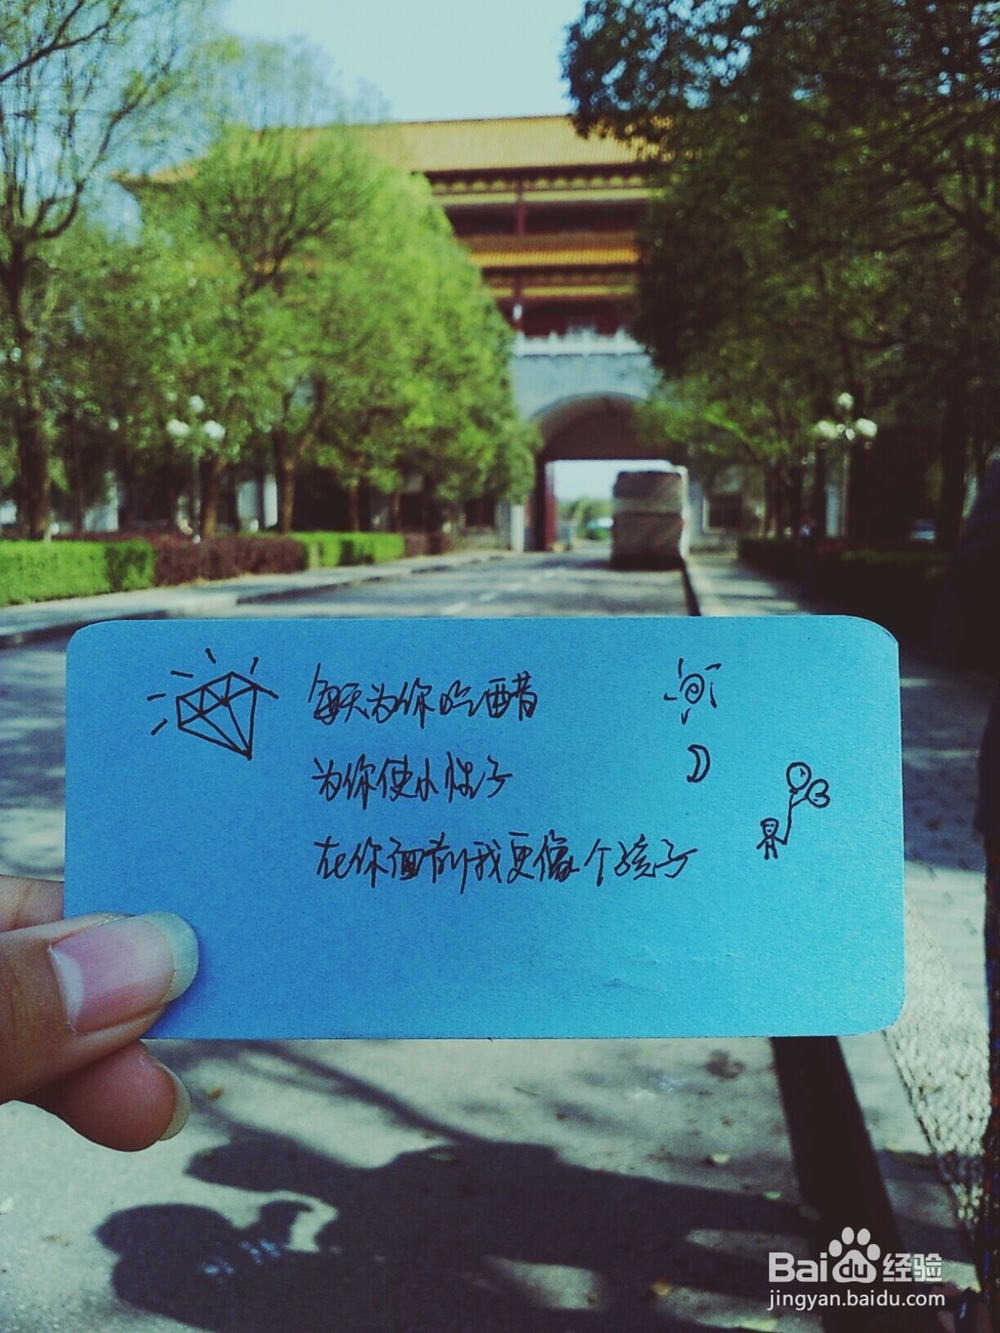 每天为你吃醋
为你使小性子
在你面前我更像个孩子
Bai du 经验
jingyan.baidu.com